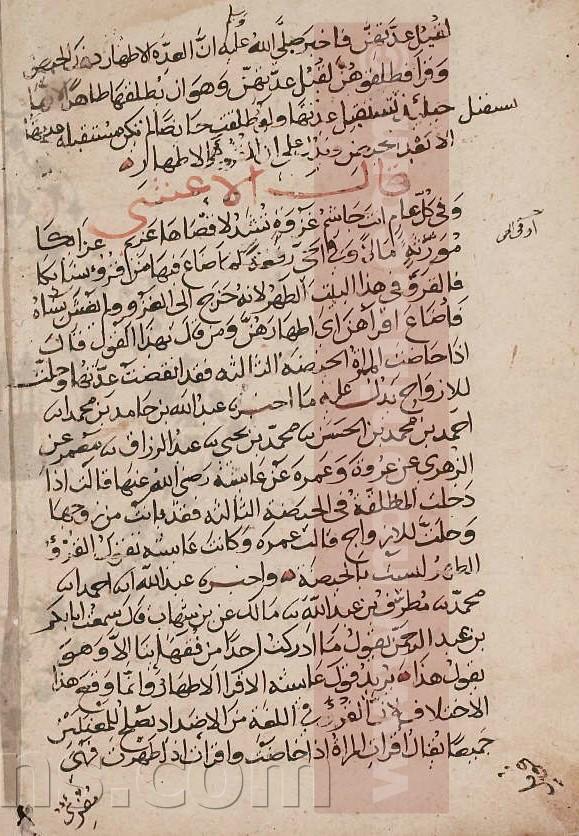 لقبل عدتهن فاخبر صلى الله عليه وسلم ان العدة الاطهار دون الحيض
وقرا فطلقوهن لقبل عدتهن وهو ان يطلقها طاهرا لانها
تستقبل حينئذ عدتها ولو طلقت حائضا لم تكن مستقبلة عدتها
الا بعد الحيض ويدل على ان القرؤ هو الاطهار
قال الاعشى
وفي كل عام انت جاشم غزوة تشد لاقصاها عزيم عزائكا
مورثة مالا وفي الحي رفعة لما ضاع فيها من قروء نسائكا
فالقرؤ في هذا البيت الطهر لانه خرج الى الغزو ولم يغش نساه
فاضاع اقراهن اى اطهارهن ومن قال بهذا القول قال
اذا حاضت المراة الحيضة الثالثة فقد انقضت عدتها وحلت
للازواج يدل عليه ما اخبره عبدالله بن حامد بن محمد انا
احمد بن محمد بن الحسن نا محمد بن يحيى نا عبد الرزاق نا معمر عن
الزهرى عن عروة وعمرة عن عايشة رضى الله عنها قالت اذا
دخلت المطلقة في الحيضة الثالثة فقد بانت من زوجها
وحلت للازواج قالت عمرة وكانت عايشة تقول القرؤ
الطهر ليست بالحيضة واخبره عبدالله انا احمد انا
محمد نا مطرف بن عبدالله نا مالك عن بن شهاب قال سمعت ابا بكر
بن عبد الرحمن يقول ما ادركت احدا من فقهاينا الا وهو
يقول هذا يريد قول عايشة الاقرا الاطهار وانما وقع هذا
الاختلاف لان القرء في اللغة من الاضداد يصلح للمعنيين
جميعا يقال اقرات المراة اذا حاضت واقرات اذا طهرت فهي
مقرئ